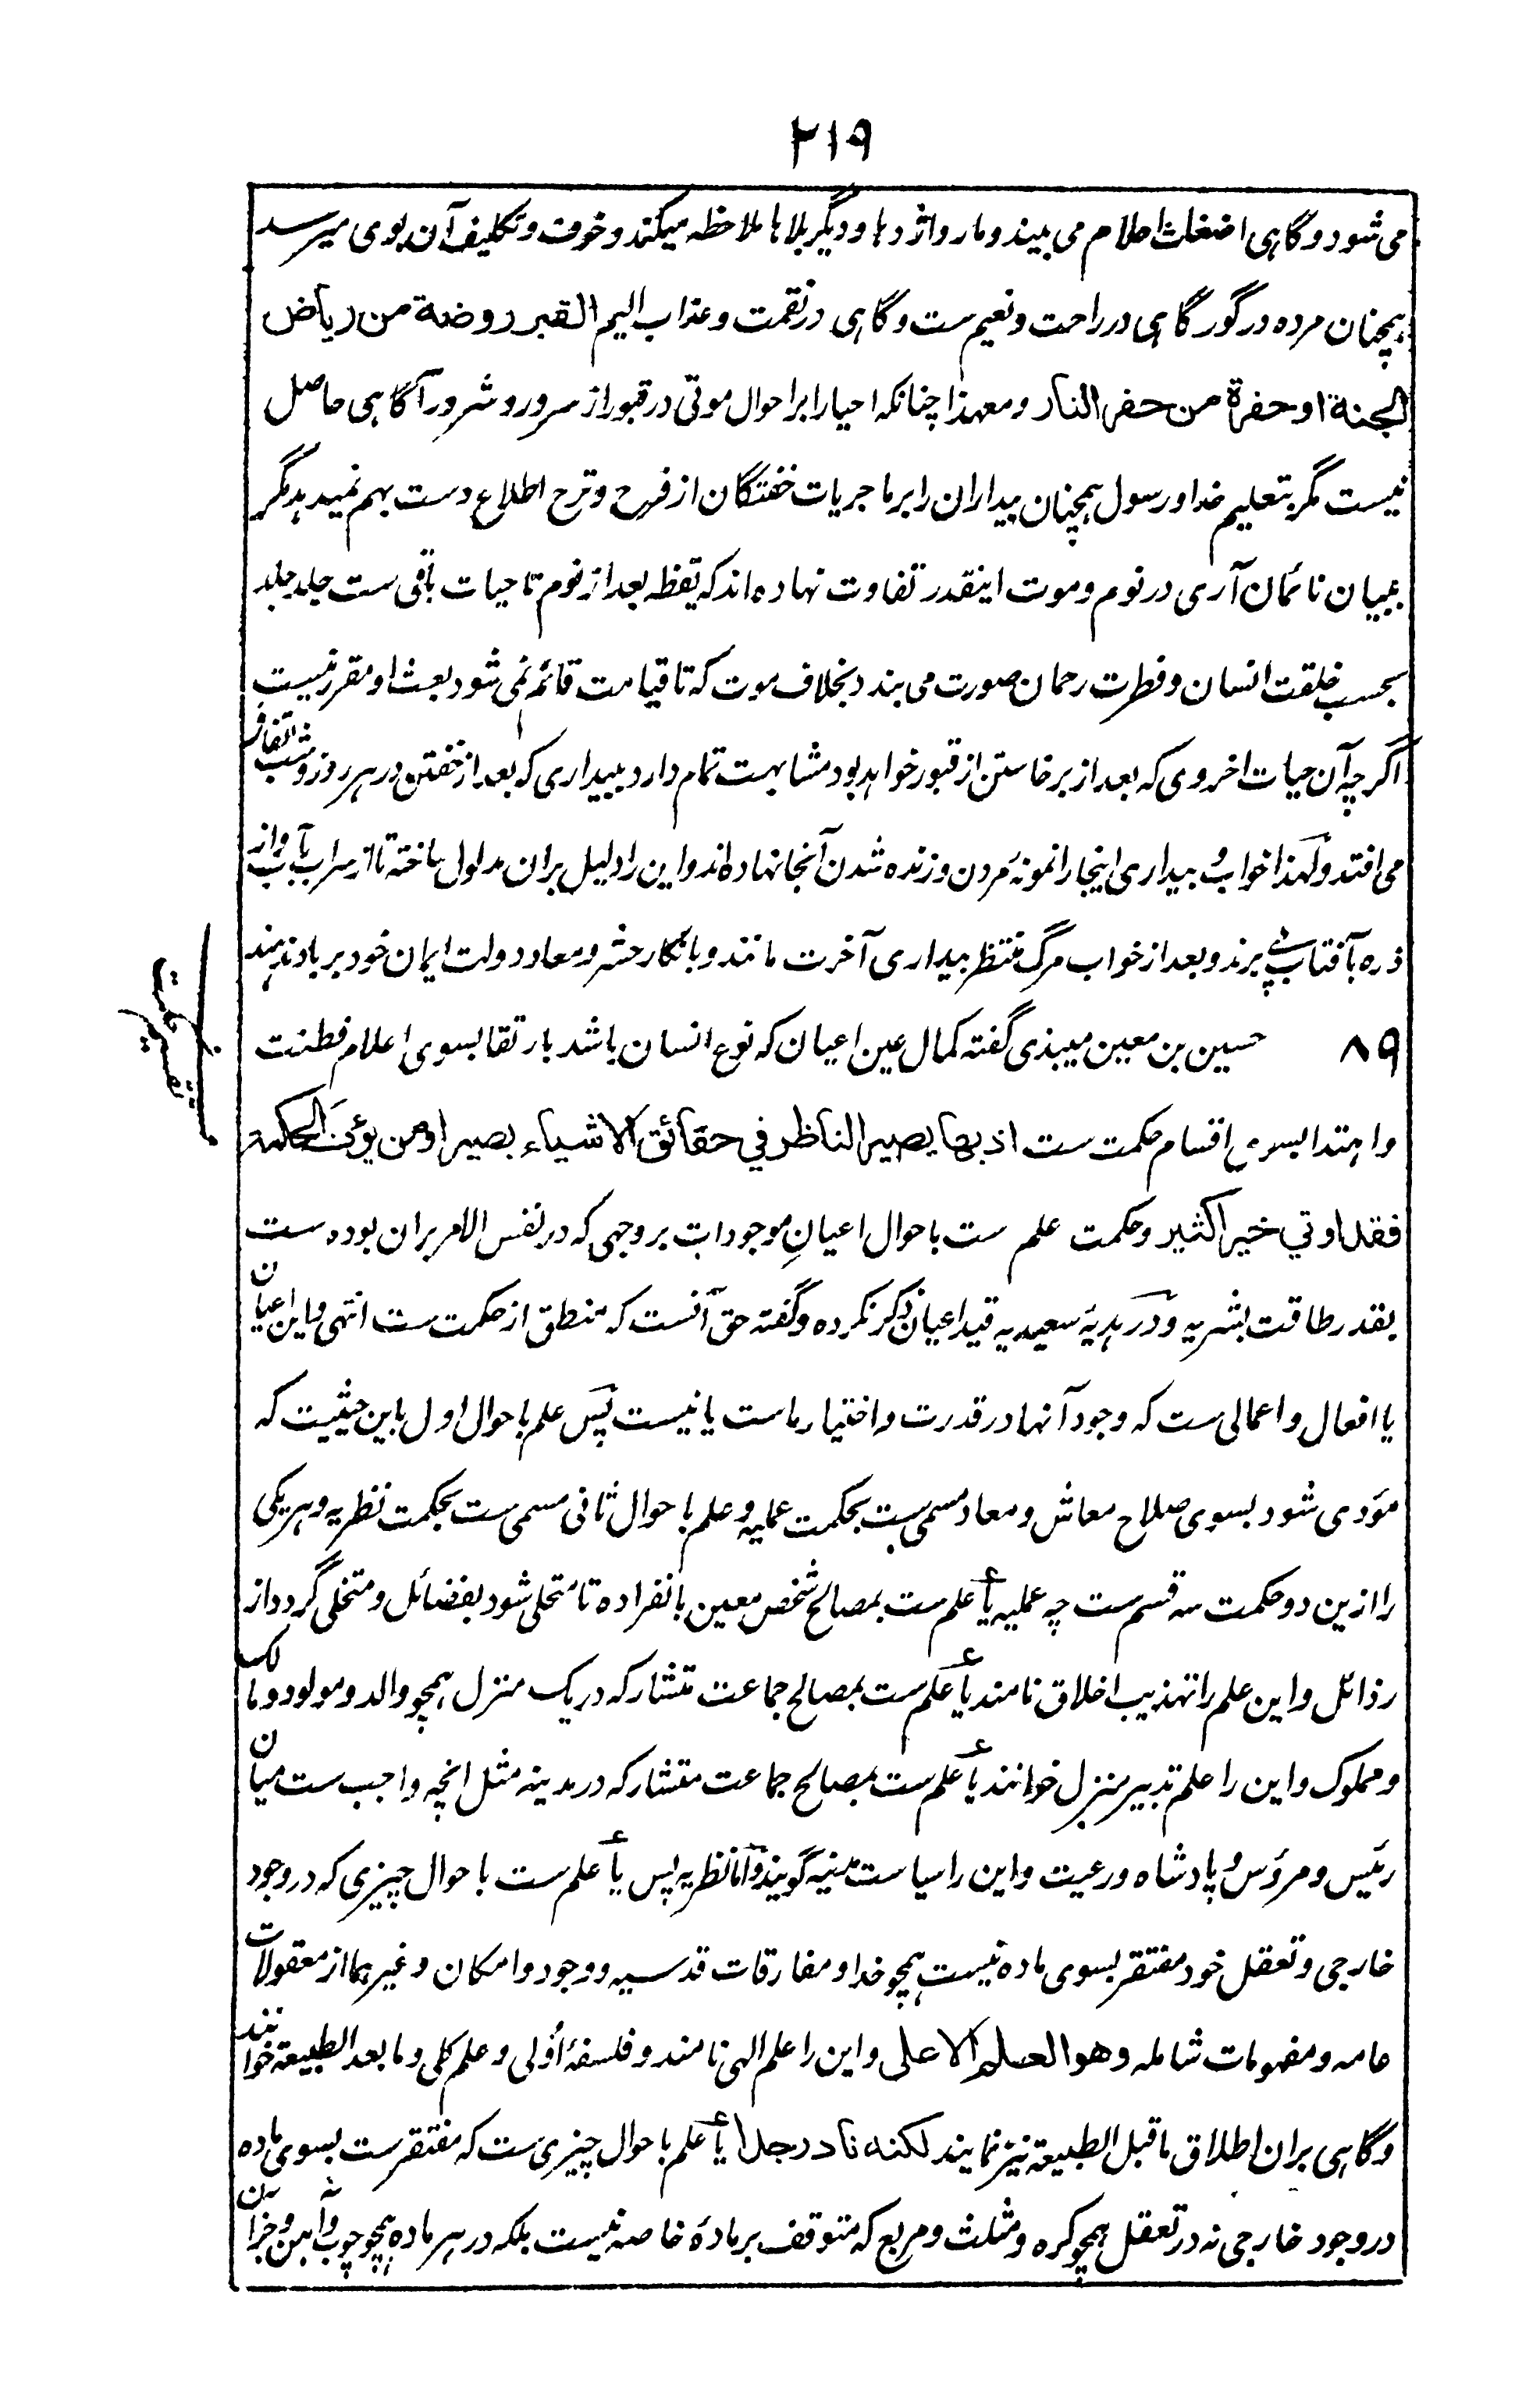 ۲۱۹
می شود و گاہی اضغاث احلام می بیند و مار و اژدہا و دیگر بلاہا ملاحظہ میکند و خوف و تکلیف آن بوی میرسد
ہمچنان مردہ در گور گاہی در راحت و نعیم ست و گاہی در نقمت و عذاب الیم القبر روضة من ریاض
الجنة او حفرة من حفر النار و معہذا چنانکہ احیا را بر احوال موتی در قبور از سرور و شرور آگاہی حاصل
نیست مگر بتعلیم خدا و رسول ہمچنان بیداران را بر ماجریات خفتگان از فرح و ترح اطلاع دست بہم نمیدہد مگر
ببیان نائمان آری در نوم و موت اینقدر تفاوت نہادہ اند کہ یقظہ بعد از نوم تا حیات باقی ست جلد جلد
بحسب خلقت انسان و فطرت رحمان صورت می بندد بخلاف موت کہ تا قیامت قائم نمی شود بعث او مقرر نیست
اگرچہ آن حیات اخروی کہ بعد از برخاستن از قبور خواہد بود مشابہت تمام دارد ببیداری کہ بعد از خفتن در ہر روز و شب اتفاق
می افتد ولہذا خواب و بیداری اینجا را نمونۂ مردن و زندہ شدن آنجا نہادہ اند و این را دلیل بران مدلول ساختہ تا از سراب بآب و از
ذرہ بآفتاب پی برند و بعد از خواب مرگ منتظر بیداری آخرت مانند و بانکار حشر و معاد دولت ایمان خود بر باد ندہند
۸۹ حسین بن معین میبذی گفتہ کمال عین اعیان کہ نوع انسان باشد بارتقا بسوی اعلام فطنت
تقسیم حکمت
و اہتدا بسوی اقسام حکمت ست اذ بها یصیر الناظر في حقائق الاشیاء بصیرا ومن یؤت الحکمة
فقد اوتي خیرا کثیرا و حکمت علم ست باحوال اعیانِ موجودات بر وجہی کہ در نفس الامر بران بودہ ست
بقدر طاقت بشریہ و در ہدیۂ سعیدیہ قید اعیان ذکر نکردہ و گفتہ حق آنست کہ منطق از حکمت ست انتہی و این اعیان
یا افعال و اعمالی ست کہ وجود آنہا در قدرت و اختیار ماست یا نیست پس علم باحوال اول باین حیثیت کہ
مؤدی شود بسوی صلاح معاش و معاد مسمی ست بحکمت عملیہ و علم باحوال ثانی مسمی ست بحکمت نظریہ و ہر یکی
را ازین دو حکمت سہ قسم ست چہ عملیہ یا علم ست بمصالح شخص معین بانفرادہ تا متحلی شود بفضائل و متخلی گردد از
رذائل و این علم را تہذیب اخلاق نامند یا علم ست بمصالح جماعت متشارکہ در یک منزل ہمچو والد و مولود و مالک
و مملوک و این را علم تدبیر منزل خوانند یا علم ست بمصالح جماعت متشارکہ در مدینہ مثل انچہ واجب ست میان
رئیس و مرؤس و پادشاہ و رعیت و این را سیاست مدنیہ گویند و اما نظریہ پس یا علم ست باحوال چیزی کہ در وجود
خارجی و تعقل خود مفتقر بسوی مادہ نیست ہمچو خدا و مفارقات قدسیہ و وجود و امکان و غیرہما از معقولات
عامہ و مفہومات شاملہ وهو العلم الاعلی و این را علم الہی نامند و فلسفۂ اُولی و علم کلی و ما بعد الطبیعة خوانند
و گاہی بران اطلاق ما قبل الطبیعة نیز نمایند لکنه نادر جدا یا علم باحوال چیزی ست کہ مفتقر ست بسوی مادہ
در وجود خارجی نہ در تعقل ہمچو کرہ و مثلث و مربع کہ متوقف بر مادۂ خاصہ نیست بلکہ در ہر مادہ ہمچو چوب و آہن و جز آن